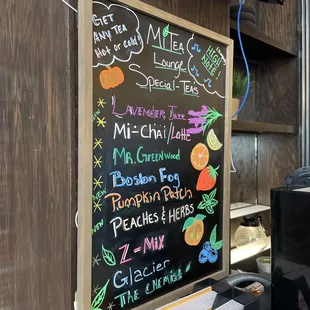 GET
ANY TEA
Hot or cold
MiTEA
Lounge
Special-TEAS
HIGH
NOTE
LAVENDER
Mi-Chai/Latte
Mr. Greenwood
Boston Fog
Pumpkin Patch
PEACHES & HERBS
Z-Mix
Glacier
THE CHEMIST